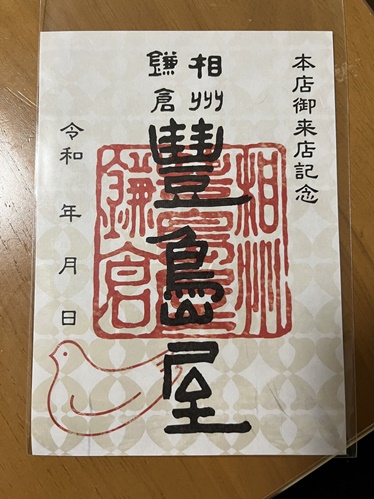 本店御来店記念
相州
鎌倉
豐島屋
令和 年 月 日
相州
豊島屋
鎌倉